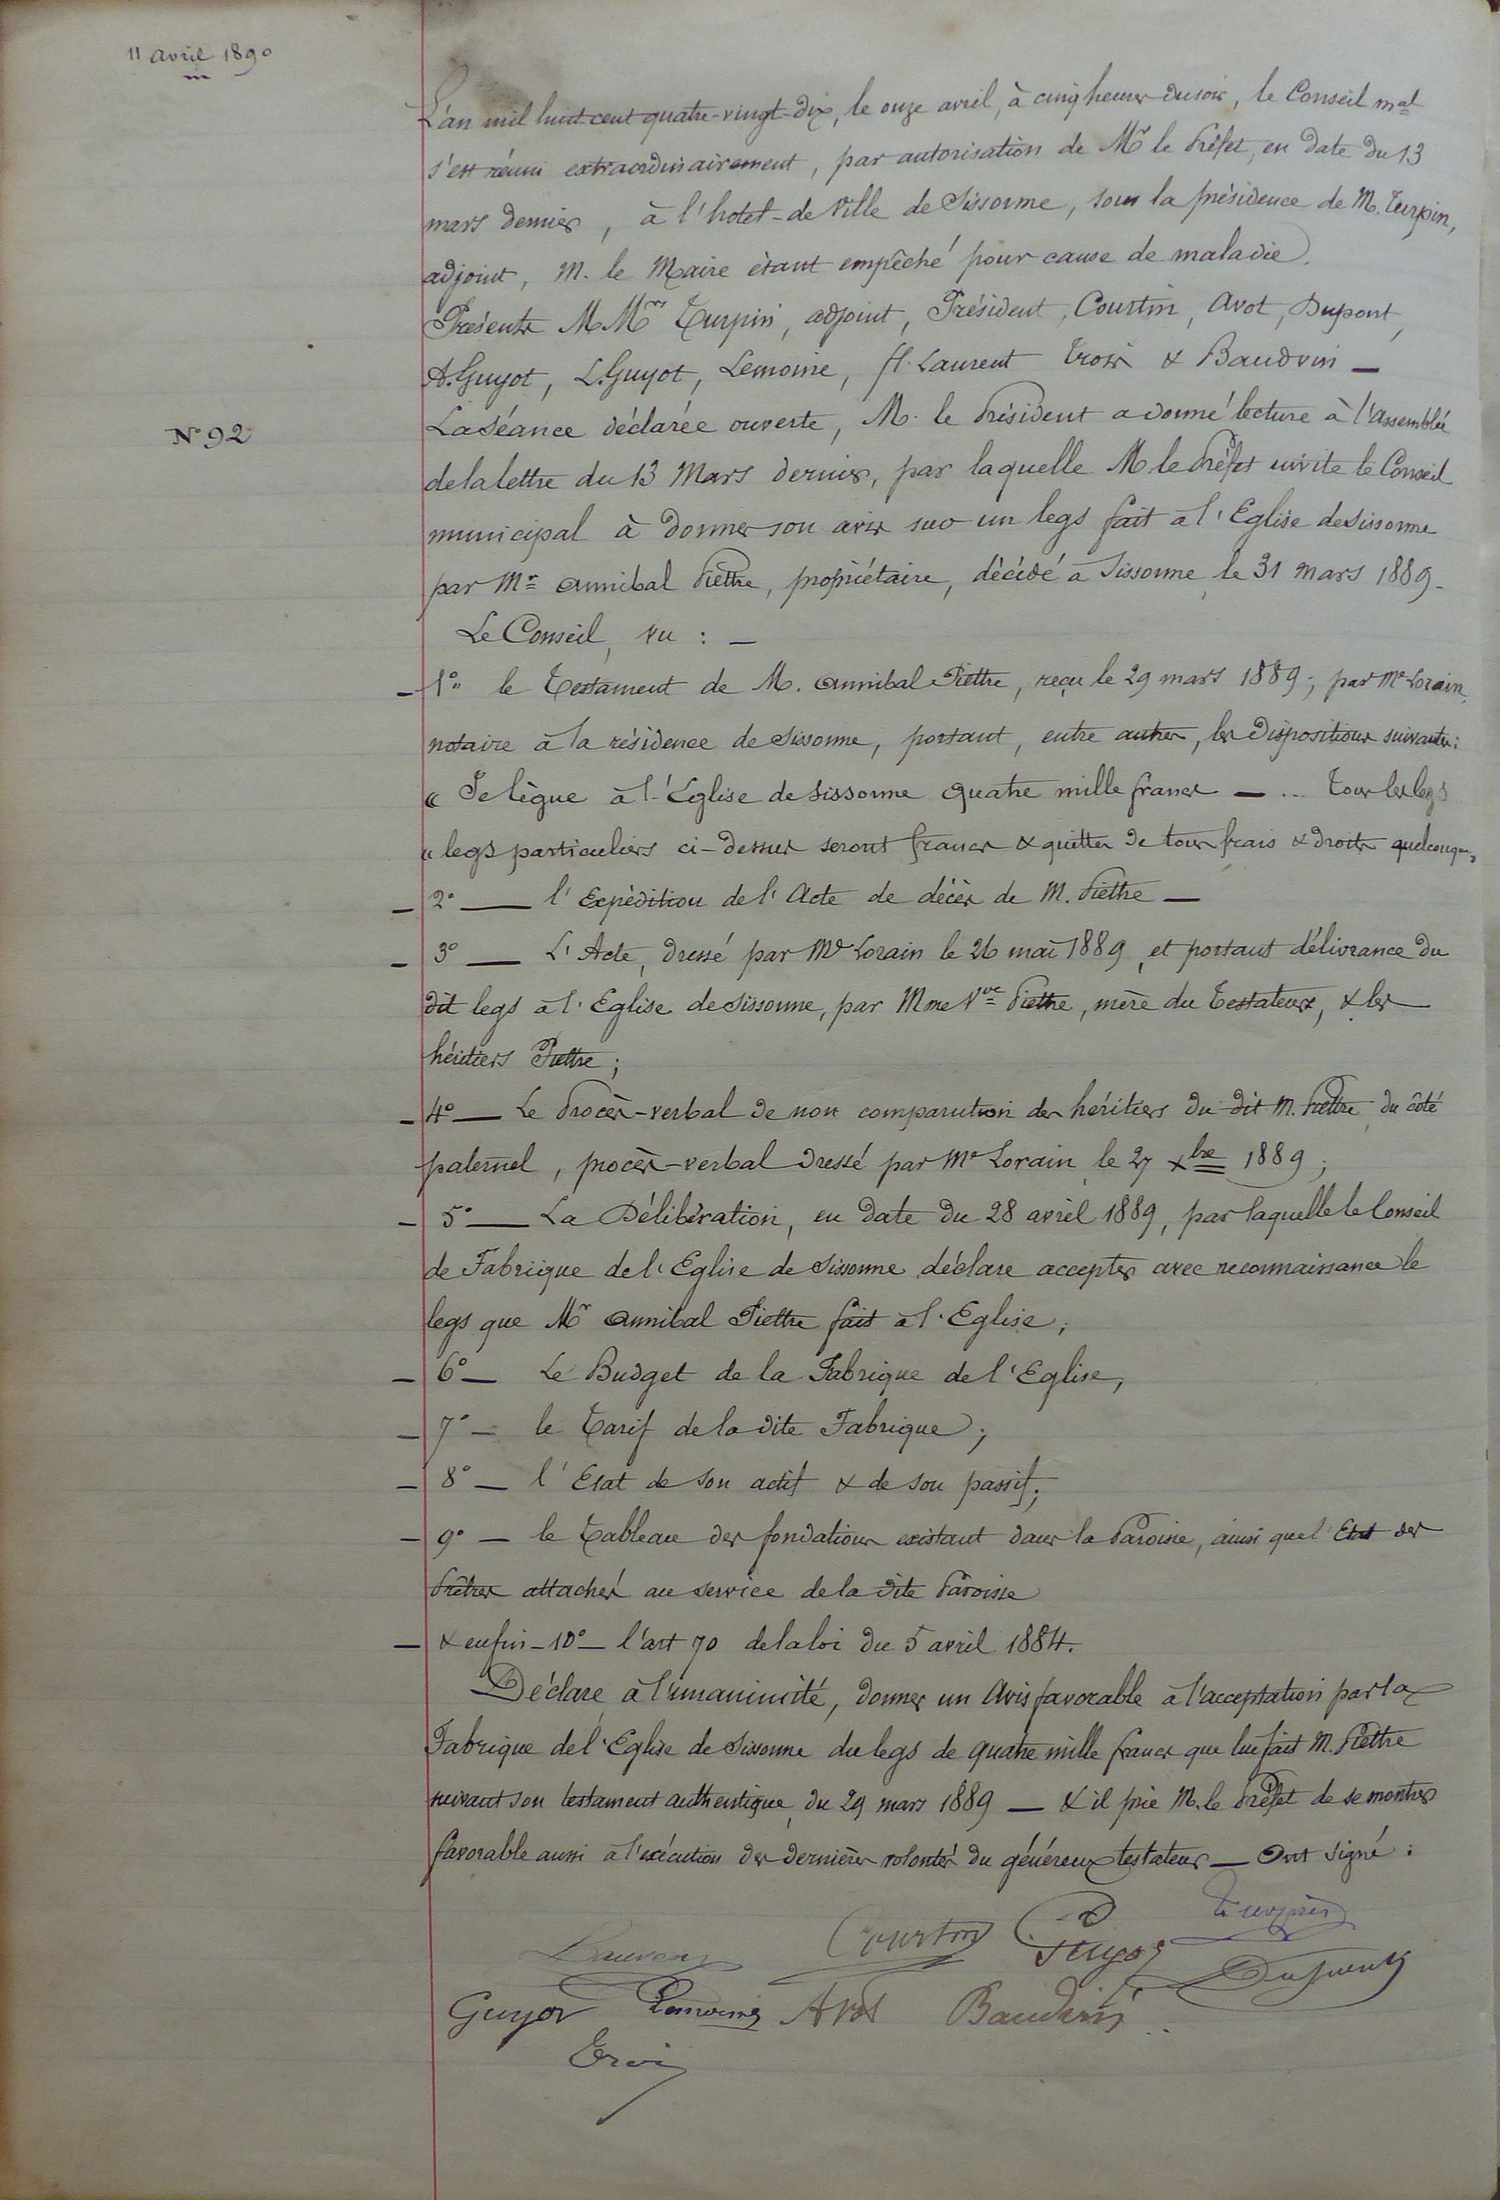 11 avril 1890
L'an mil huit cent quatre-vingt-dix, le onze avril, à cinq heures du soir, le Conseil mal
s'est réuni extraordinairement, par autorisation de Mr le Préfet, en date du 13
mars dernier, à l'hotel-de Ville de Sissonne, sous la présidence de M. Turpin,
adjoint, M. le Maire étant empêché pour cause de maladie.
Présents MMrs Turpin, adjoint, Président, Courtin, Avot, Dupont,
A. Guyot, L. Guyot, Lemoine, fl. Laurent Trois & Baudvin —
N° 92
La Séance déclarée ouverte, M. le Président a donné lecture à l'Assemblée
de la lettre du 13 Mars dernier, par laquelle M le Préfet invite le Conseil
municipal à donner son avis sur un legs fait à l'Eglise de Sissonne
par Mr Annibal Piettre, propriétaire, décédé à Sissonne, le 31 mars 1889-
Le Conseil, vu : —
— 1° le Testament de M. Annibal Piettre, reçu le 29 mars 1889; par Me Lorain,
notaire à la résidence de Sissonne, portant, entre autres, les dispositions suivantes:
« Je lègue à l'Eglise de Sissonne quatre mille francs — ... tous les legs
« legs particuliers ci-dessus seront francs & quittes de tous frais & droits quelconques
— 2° — l'Expédition de l'Acte de décès de M. Piettre —
— 3° — L'Acte, dressé par Me Lorain le 26 mai 1889, et portant délivrance du
dit legs à l'Eglise de Sissonne, par Mme Vve Piettre, mère du Testateur, & les
héritiers Piettre;
— 4° — Le Procès-verbal de non comparution des héritiers du dit M. Piettre, du côté
paternel, procès-verbal dressé par Me Lorain, le 27 xbre 1889;
— 5° — La Délibération, en date du 28 avril 1889, par laquelle le Conseil
de Fabrique de l'Eglise de Sissonne déclare accepter avec reconnaissance le
legs que Mr Annibal Piettre fait à l'Eglise;
— 6° — Le Budget de la Fabrique de l'Eglise,
— 7° — le Tarif de la dite Fabrique;
— 8° — l'Etat de son actif & de son passif;
— 9° — le Tableau des fondations existant dans la Paroisse, ainsi que l'Etat des
Prêtres attachés au service de la dite Paroisse
— & enfin — 10° — l'art 70 de la loi du 5 avril 1884.
Déclare, à l'unanimité, donner un Avis favorable à l'acceptation par la
Fabrique de l'Eglise de Sissonne du legs de quatre mille francs que lui fait M. Piettre
suivant son testament authentique, du 29 mars 1889 — & il prie M. le Préfet de se montrer
favorable aussi à l'exécution des dernières volontés du généreux testateur — Ont signé :
Laurent Courtin Guyot Turpin
Dupont
Guyot Lemoine Avot Baudvin
Trois